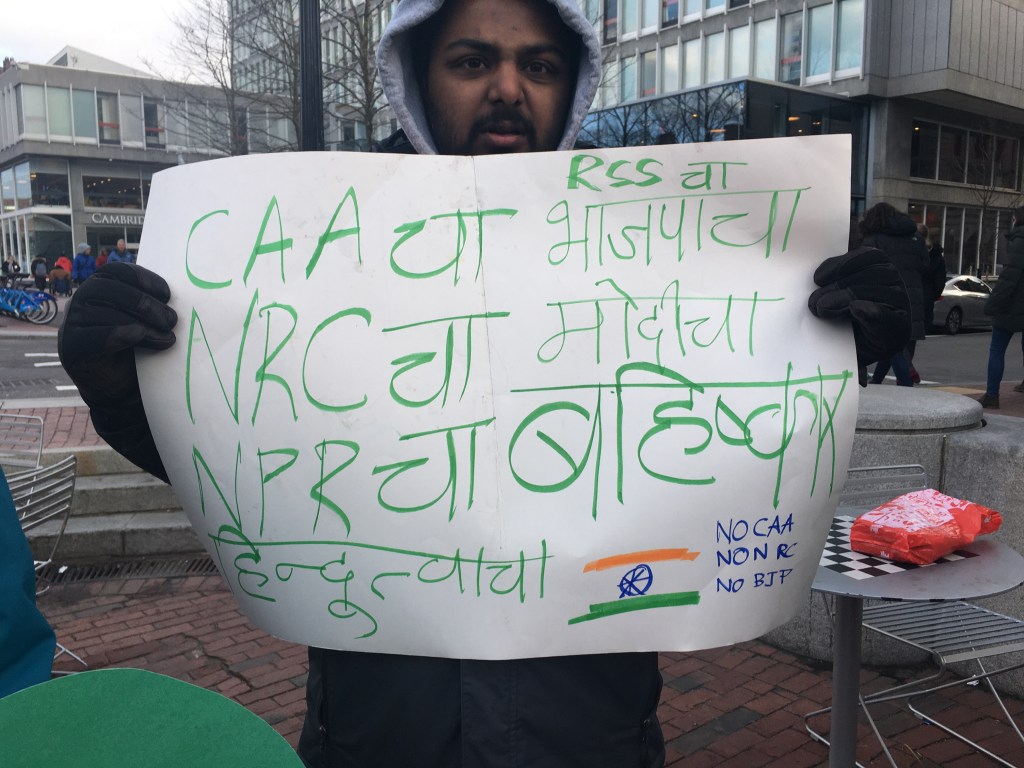 CAA चा
NRC चा
NPR चा
हिन्दुत्वाचा
RSS चा
भाजपाचा
मोदीचा
बहिष्कार
NO CAA
NO NRC
NO BJP
CAMBRID